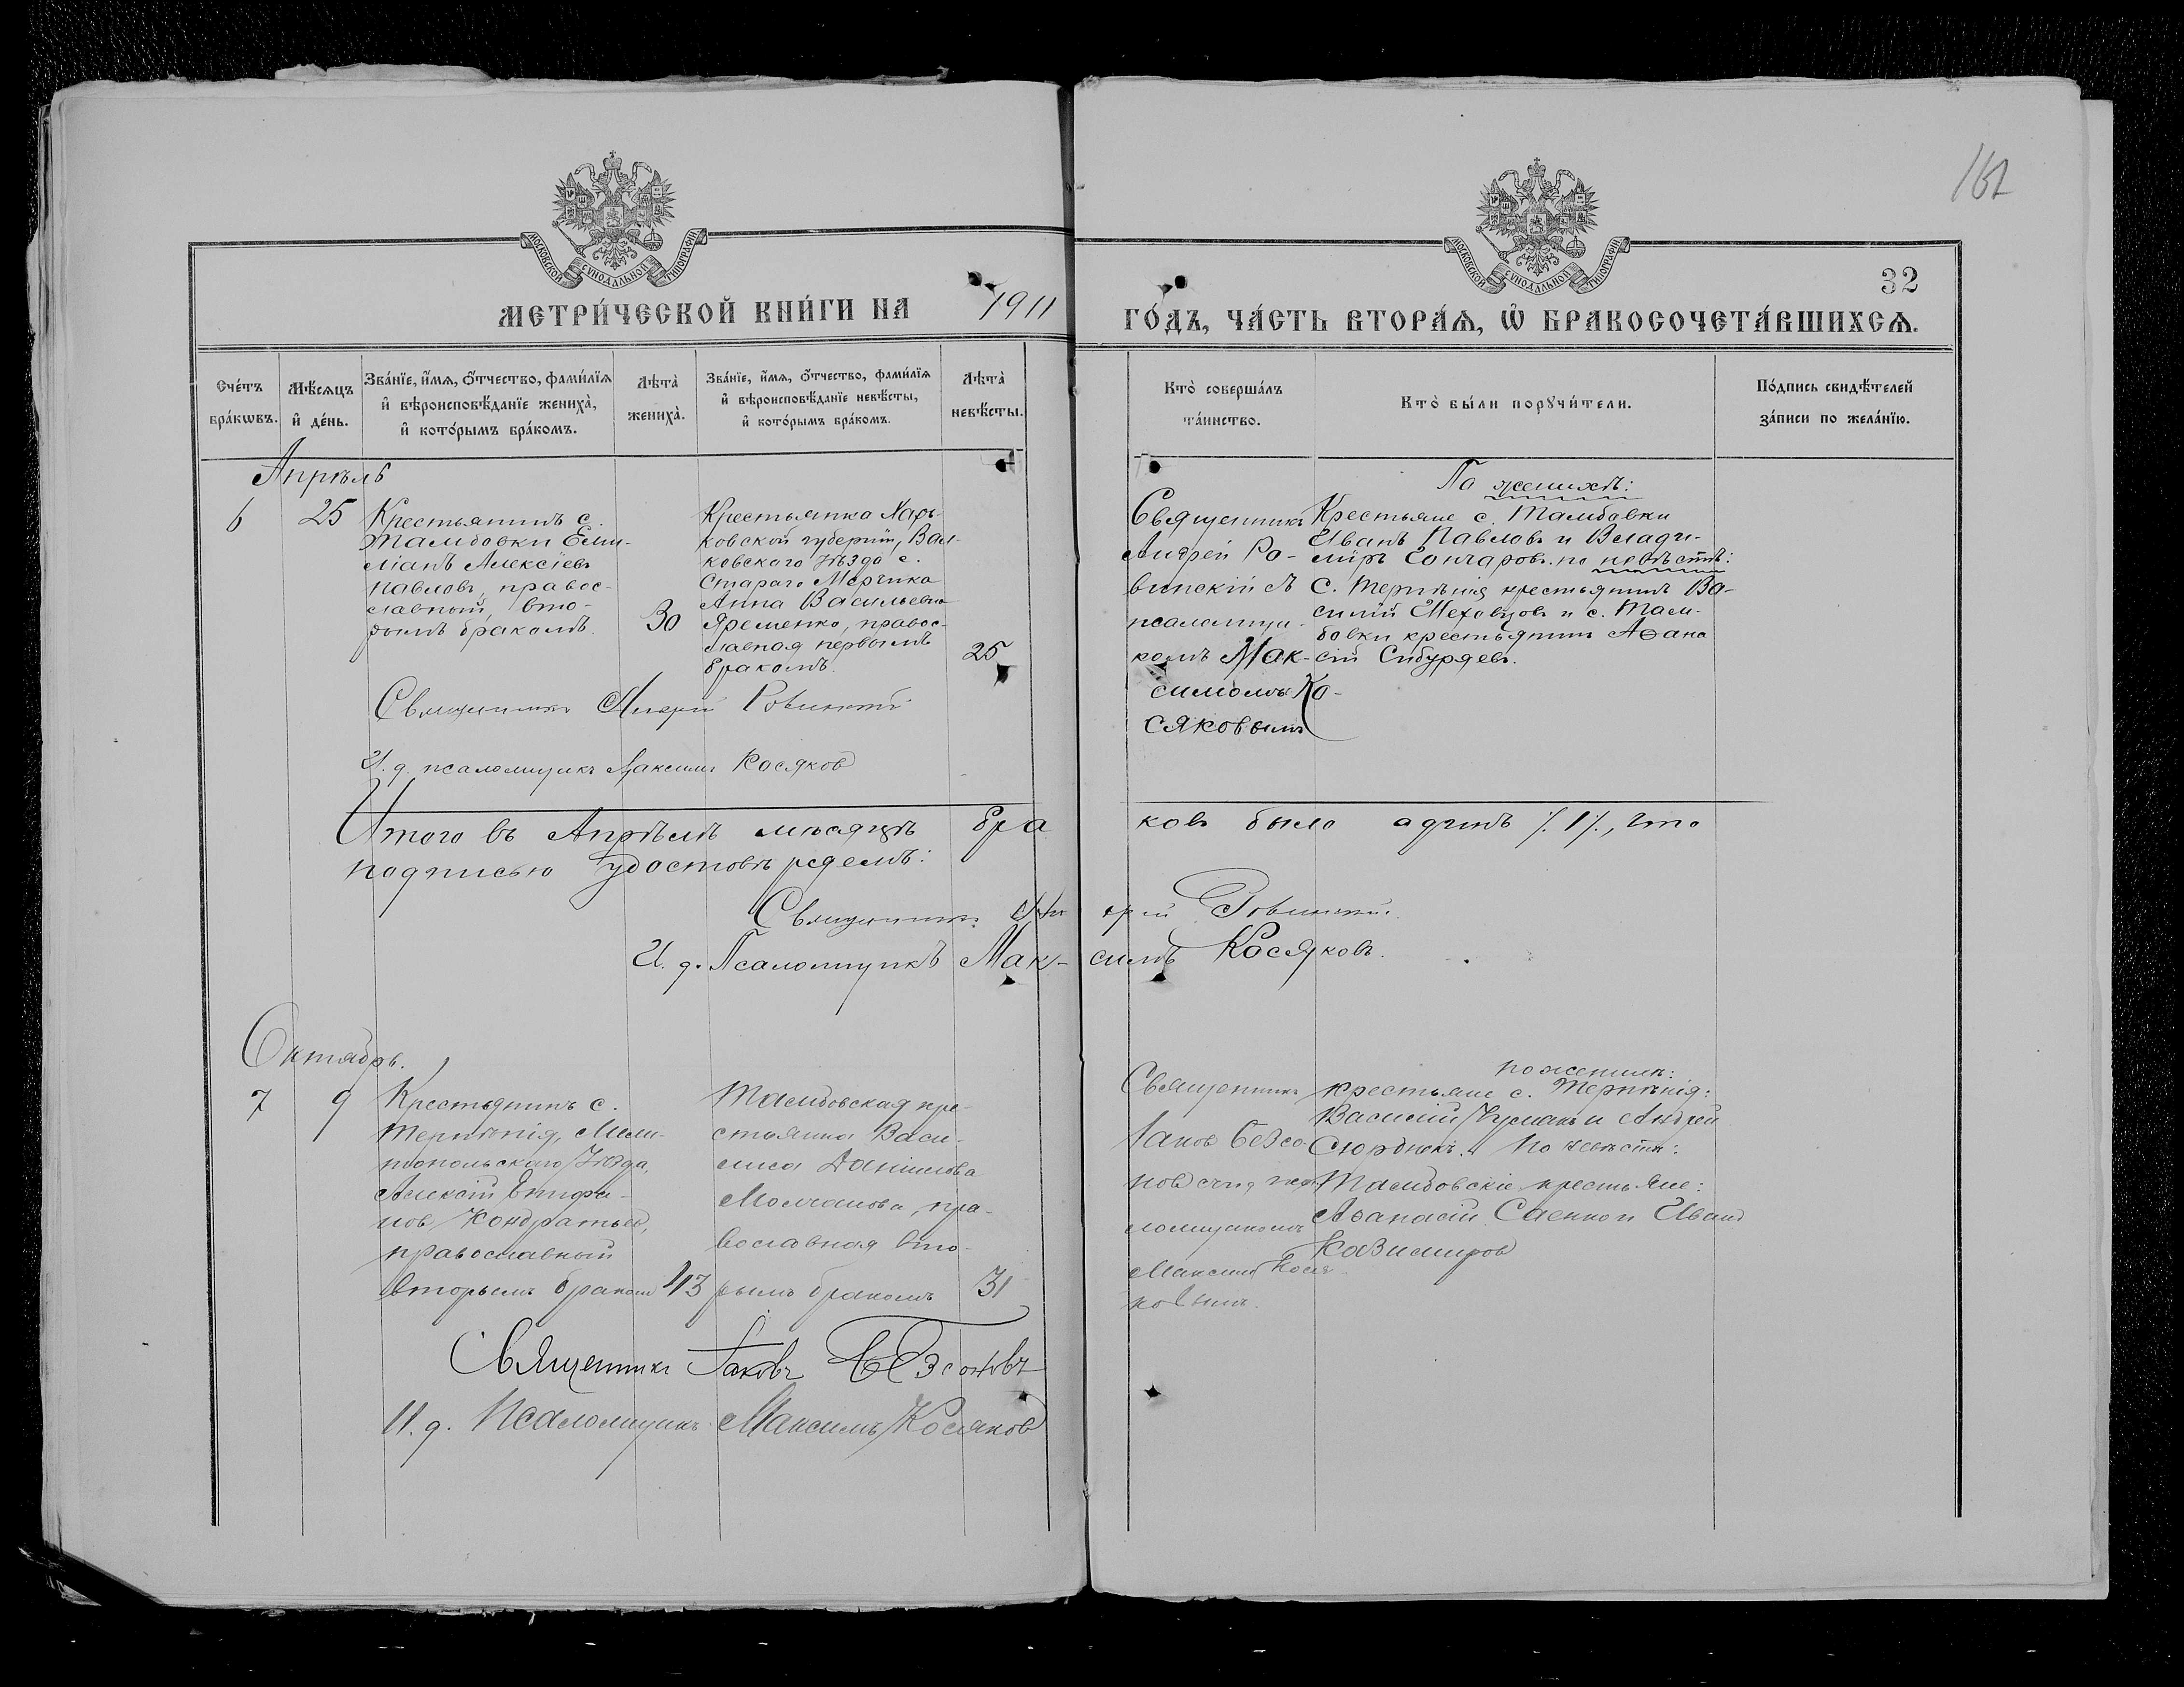 161
МОСКОВСКОЙ СУНОДАЛЬНОЙ ТИПОГРАФИИ
МОСКОВСКОЙ СУНОДАЛЬНОЙ ТИПОГРАФИИ
32
МЕТРИ́ЧЕСКОЙ КНИ́ГИ НА 1911
ГО́ДЪ, ЧА́СТЬ ВТОРА́Ѧ, Ѽ БРАКОСОЧЕТА́ВШИХСѦ.
Сче́тъ
бра́кѡвъ.
Мѣ́сѧцъ
и҆ де́нь.
Зва́нїе, и҆́мѧ, ѻ҆́тчество, фами́лїѧ
и҆ вѣроисповѣ́данїе жениха̀,
и҆ кото́рымъ бра́комъ.
Лѣта̀
жениха̀.
Зва́нїе, и҆́мѧ, ѻ҆́тчество, фами́лїѧ
и҆ вѣроисповѣ́данїе невѣ́сты,
и҆ кото́рымъ бра́комъ.
Лѣта̀
невѣ́сты.
Кто̀ соверша́лъ
та́инство.
Кто̀ бы́ли порꙋчи́тели.
По́дпись свидѣ́телей
за́писи по жела́нїю.
Апрѣль
6
25
Крестьянинъ с.
Тамбовки Еми-
ліанъ Алексіевъ
Павловъ, правос-
славный, вто-
рымъ бракомъ.
30
Крестьянка Харь-
ковской губерніи, Вал-
ковскаго уѣзда с.
Стараго Мерчика
Анна Васильевна
Яременко, правос-
лавная первымъ
бракомъ.
25
Священникъ
Андрей Ро-
винскій съ
псаломщи-
комъ Мак-
симомъ Ко-
сяковымъ
По женихѣ:
Крестьяне с. Тамбовки
Иванъ Павловъ и Влади-
міръ Гончаровъ. по невѣстѣ:
С. Терпѣнія крестьянинъ Ва-
силій Меховцовъ и с. Там-
бовки крестьянинъ Аѳана
сій Сибуряевъ.
Священникъ Андрей Ровинскій
И. д. псаломщикъ Максимъ Косяков
Итого въ Апрѣлѣ мѣсяцѣ бра
ковъ было одинъ /.1/., что
подписью удостовѣряемъ:
Священникъ Андрей Ровинскій.
И. д. Псаломщикъ Мак-симъ Косяковъ.
Октябрь.
7
9
Крестьянинъ с.
Терпѣнія, Мели-
топольскаго уѣзда,
Алексій Епифа-
нов Кондратьев,
православный
вторымъ браком
43
Тамбовская кре-
стьянка Васи-
лиса Даніилова
Молчанова, пра-
вославная вто-
рымъ бракомъ
31
Священникъ
Іаков Безсо-
нов съ и д пса-
ломщикомъ
Максим Кося-
ковымъ.
по женихѣ:
крестьяне с. Терпѣнія:
Василій Чумакъ и Андрей
По невѣстѣ:
Тамбовскіе крестьяне:
Аѳанасій Саенко и Иван
Казимиров
Священникъ Іаковъ Безсоновъ
И. д. Псаломщикъ Максимъ Косяков